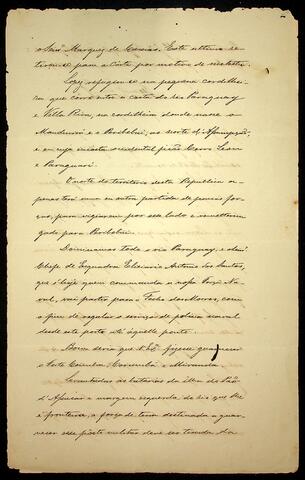 o Snr. Marquez de Caxias. Este ultimo re-
tirou-se para a Corte por motivo de molestia.
Lopez refugiou-se na pequena cordilhei-
ra que corre entre a costa do rio Paraguay
e Villa Rica, na cordilheira donde nasce o
Manduvirá e o Piribebui, ao norte d'Assumpção,
e em cuja encosta occidental ficão Cerro Leon
e Paraguari.
O norte do territorio desta Republica a-
penas tem uma ou outra partida de pouca for-
ça, para vigiarem por esse lado e remetterem
gado para Piribebui.
Dominamos todo o rio Paraguay, e o Snr.
Chefe de Esquadra Elisiario Antonio dos Santos,
que é hoje quem commanda a nossa Força Na-
val, vai partir para o Fecho dos Morros, com
o fim de regular o serviço de policia naval
desde este porto até áquelle ponto.
Bom seria que V. Exa. fizesse guarnecer
o Forte Coimbra, Corumbá e Miranda.
Levantadas as baterias da ilha de
e margem esquerda do rio que lhe
é fronteira, a força de terra destinada a guar-
necer esse ponto militar deve ser tirada da